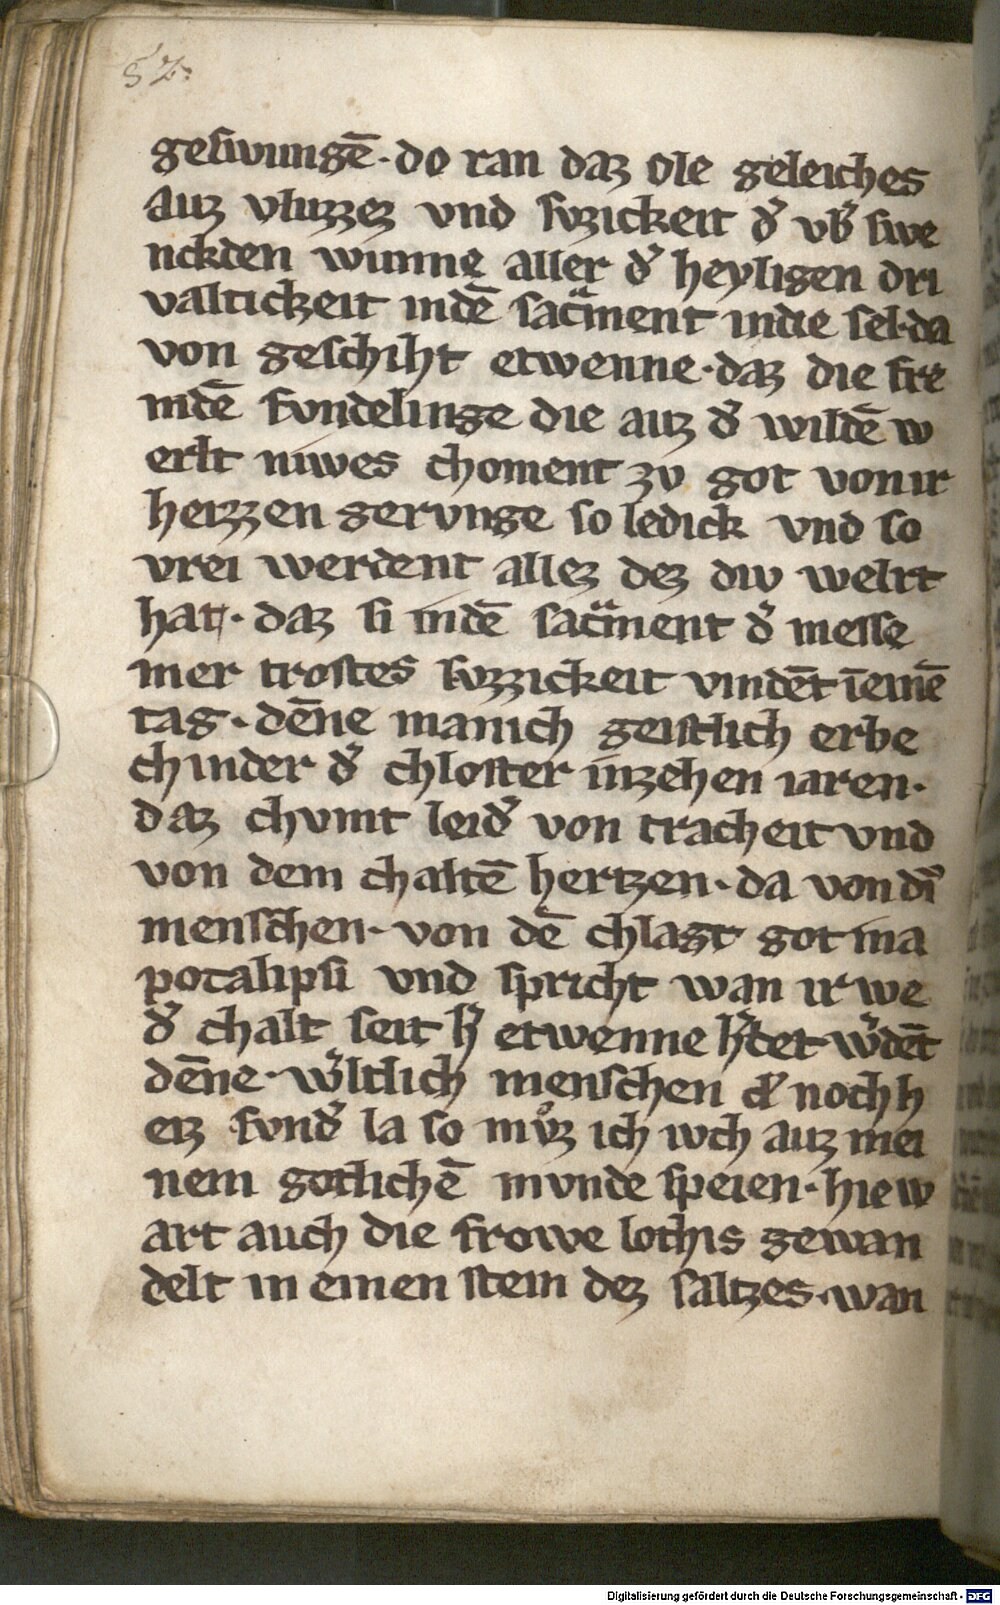 52.
geswungē · do ran daz ole geleiches
auz vluzzez vnd suzickeit d᾽ vb᾽ swe
nckden wunne aller d᾽ heyligen dri
valtickeit indē sac̈ment indie sel · da
von geschiht etwenne · daz die fre
mdē fundelinge die auz d᾽ wildē w
erlt niwes choment zv got von ir
herzzen gervnge so ledick vnd so
vrei werdent allez dez div welrt
hat · daz si indē sac̈ment d᾽ messe
mer trostes suzzickeit vindēt īeinē
tag · dēne manich geistlich erbe
chinder d᾽ chloster inzehen iaren ·
daz chvmt leid᾽ von tracheit vnd
von dem chaltē hertzen · da von di᾽
menschen · von dē chlagt got ina
potalipsi vnd spricht wan ir we
d᾽ chalt seit h᾽ etwenne h᾽tet w᾽dēt
dēne · w᾽ltlich menschen noch h
eiz svnd᾽ la so mvͦz ich iwch auz mei
nem gotlichē mvnde speien · hie w
art auch die frowe lothis gewan
delt in einen stein dez saltzes · wan
Digitalisierung gefördert durch die Deutsche Forschungsgemeinschaft - DFG